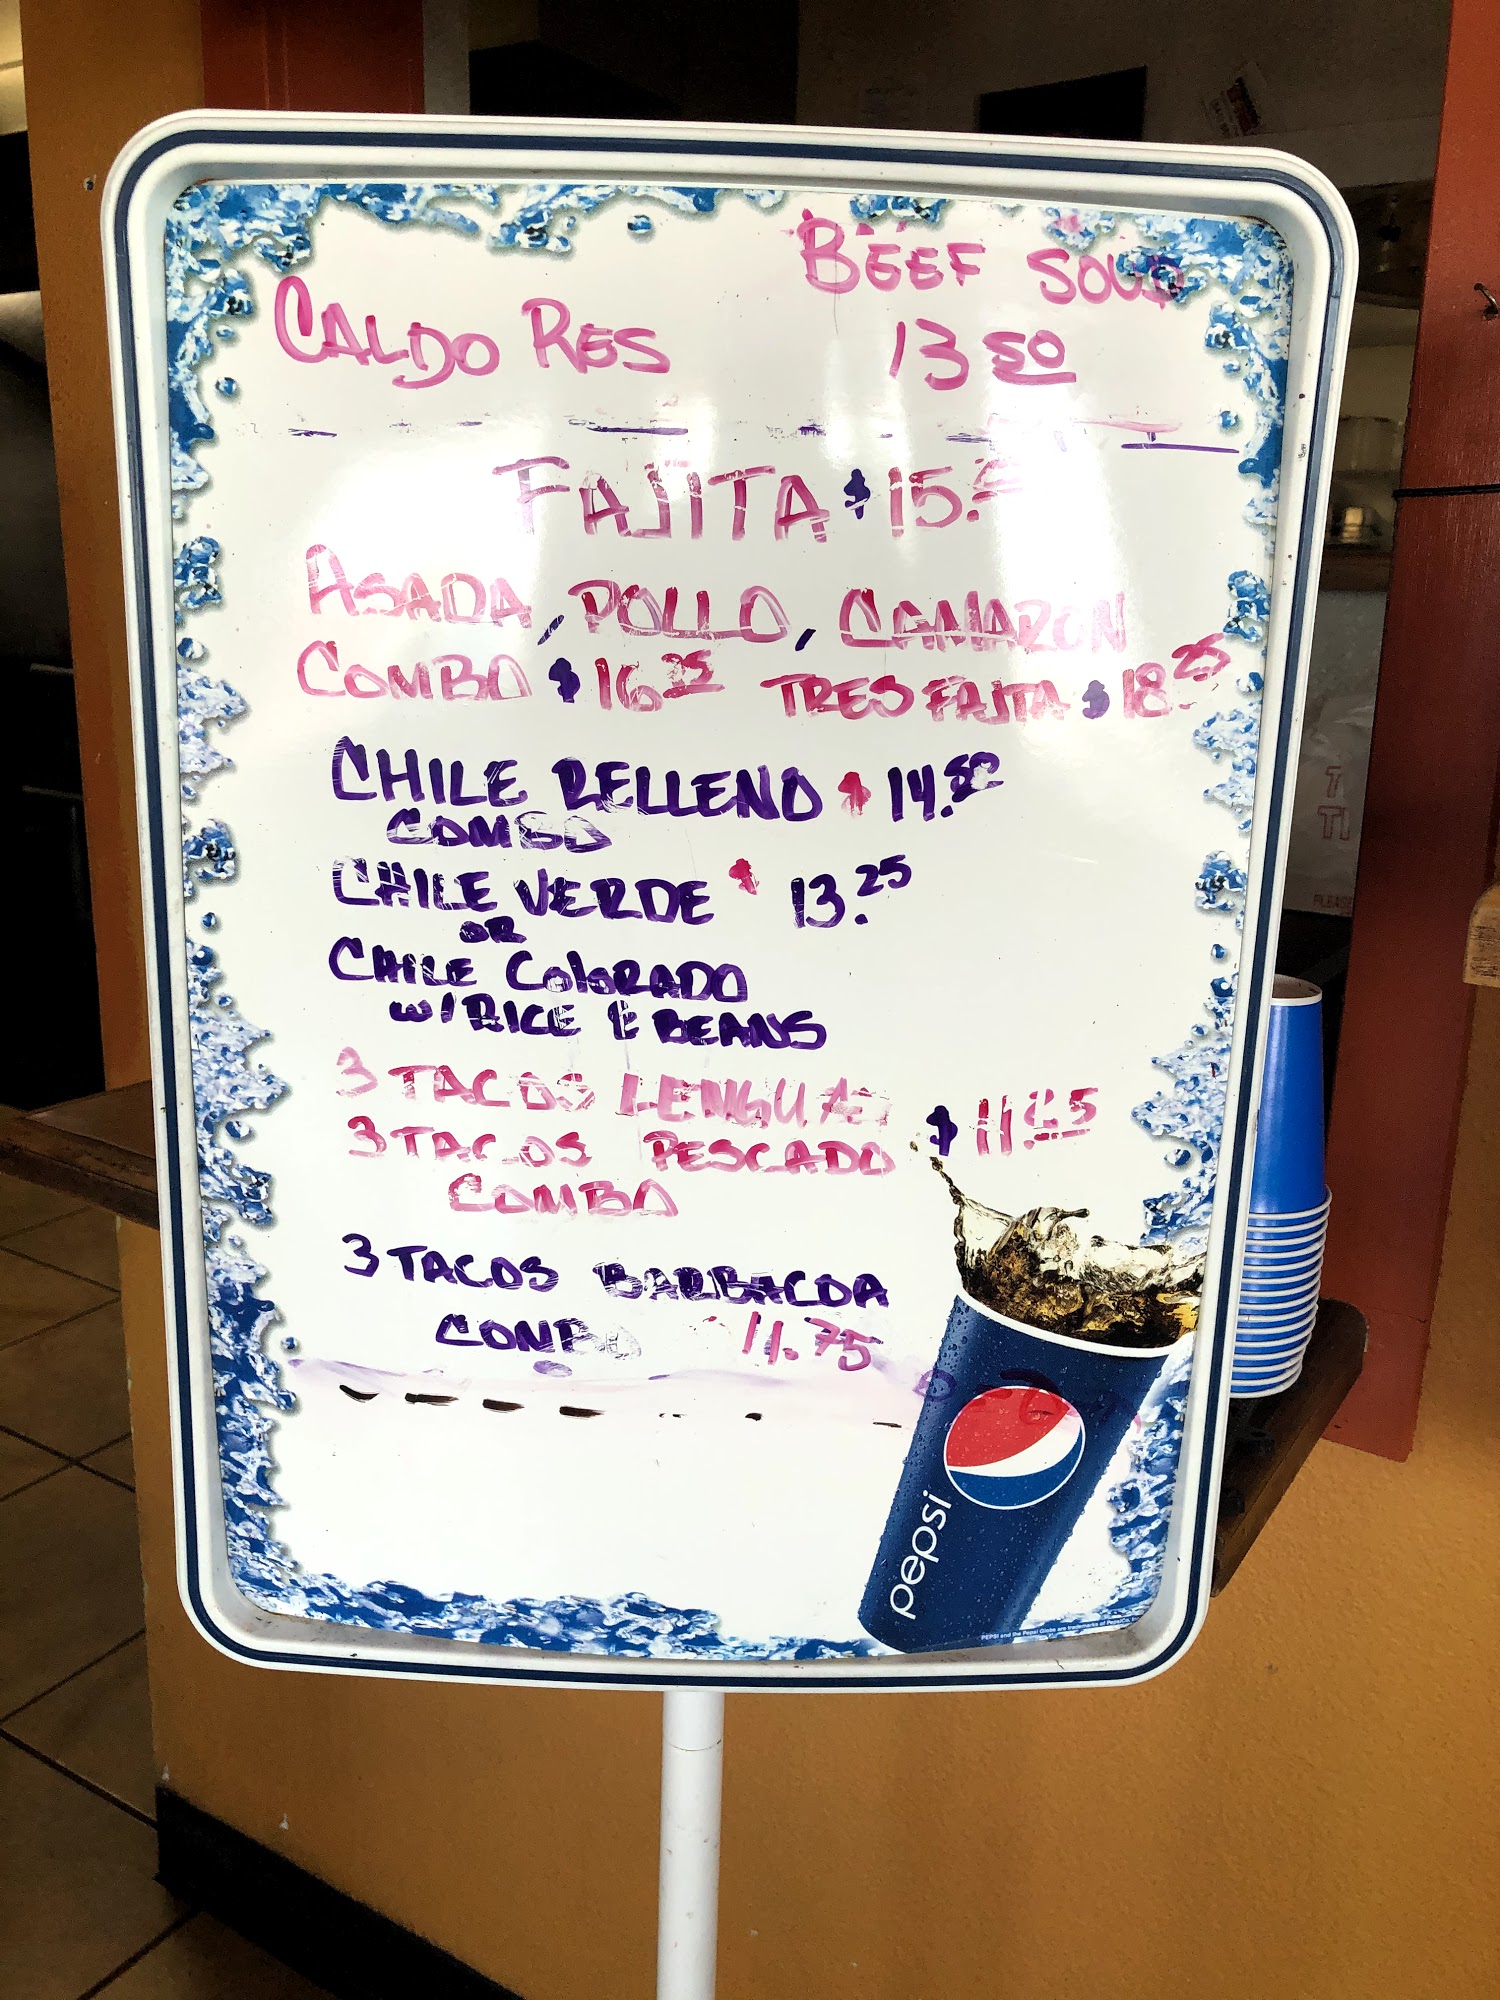 BEEF SOUP
CALDO RES 13 50
FAJITA $15.
ASADA, POLLO, CAMARON
COMBO $16 25 TRES FAJITA $18.25
CHILE RELLENO $14.50
COMBO
CHILE VERDE $ 13.25
OR
CHILE COLORADO
W/ RICE & BEANS
3 TACOS LENGUA
3 TACOS PESCADO $11.
COMBO
3 TACOS BARBACOA
COMBO 11.75
pepsi
PEPSI and the Pepsi Globe are trademarks of PepsiCo, Inc.